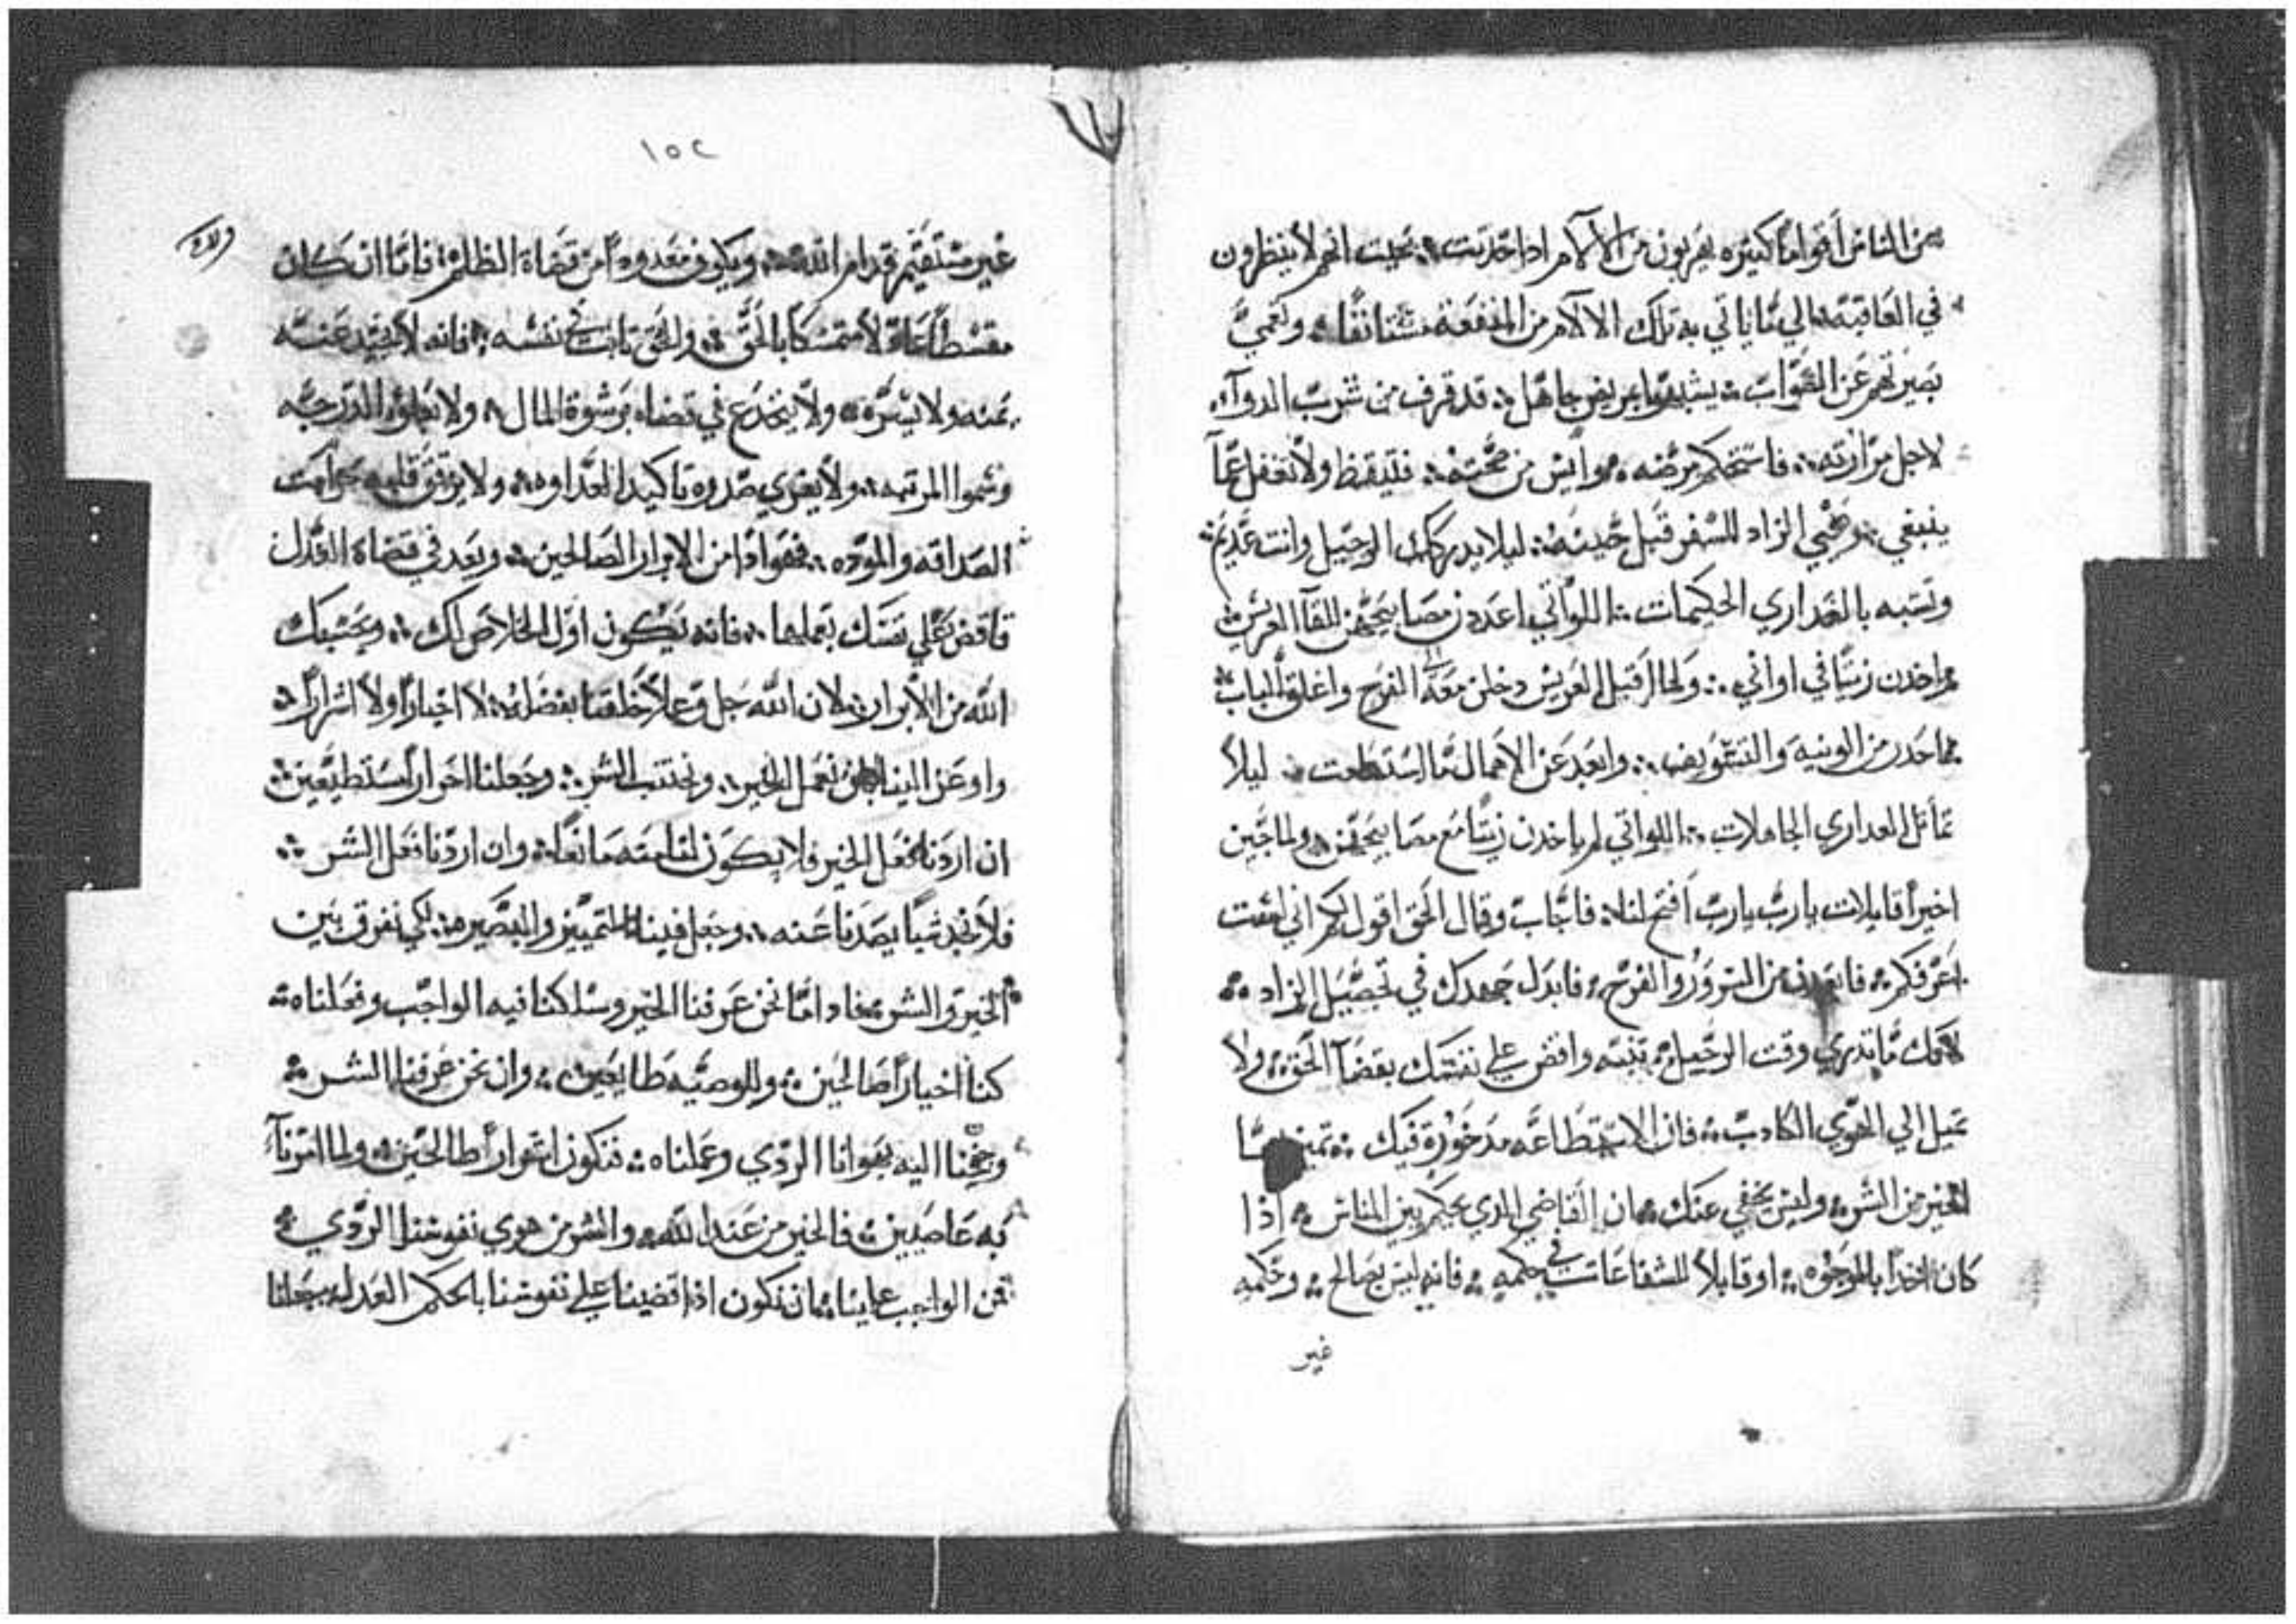 من الناس أقواما كثيره يهربون من الآلام اذا حدتت بحيت انهم لا ينظرون
في العاقبه الي ما ياتي به تلك الالام من المنفعه مستانفا وتعمي
بصيرتهم عن الصواب يشبهوا مريض جاهل قد قرف من شرب الدوآء
لاجل مرارته فاستحكم مرضه وأيس من صحته فتيقظ ولا تغفل عما
ينبغي وهيي الزاد للسفر قبل حينه ليلا يدركك الرحيل وانت عديم
وتشبه بالعداري الحكيمات اللواتي اعددن مصابيحهن للقآ العريس
واخدن زيتا في اواني ولما اقبل العريس دخلن معه الي الفرح واغلق الباب
احدر من الونيه والتعويف وابعد عن الاهمال ما استطعت ليلا
تماتل العداري الجاهلات اللواتي لم ياخدن زيتا مع مصابيحهن ولما جين
اخيرا قايلات يارب يارب افتح لنا فاجاب وقال الحق اقول لكم اني لست
اعرفكم فابعدن من السرور والفرح فابدل جهدك في تحصيل الزاد
لانك ما تدري وقت الرحيل تنبه واقض علي نفسك بقضآ الحق ولا
تميل الي الهوي الكادب فان الاستطاعه مدخورة فيك تميز بها
الخير من الشر وليس يخفي عنك ان القاضي الدي يحكم بين الناس اذا
كان اخدا بالوجوه او قابلا للشفاعات في حكمه فانه ليس بصالح وحكمه
غير
١٥٢
غير مستقيم قدام الله ويكون معدودا من قضاة الظلم فاما ان كان
مقسطا عادلا متمسكا بالحق والحق تابت في نفسه فانه لا يحيد عنه
يمنه ولا يسره ولا ينخدع في قضاه برشوة المال ولا بعلو الدرجه
وسموا المرتبه ولا يغري صدره تاكيد العداوه ولا يرقق قلبه
الصداقه والموده فهو ادا من الابرار الصالحين ويعد في قضاة العدل
فاقض علي نفسك بعملها فانه يكون اول الخلاص لك ويحسبك
الله من الابرار لان الله جل وعلا خلقنا بفضله لا اخيارا ولا اشرارا
واوعز الينا ان نعمل الخير ونجتنب الشر وجعلنا احرار مستطيعين
ان اردنا نفعل الخير فلا يكون لنا منه مانعا وان اردنا فعل الشر
فلا نجد شيا يصدنا عنه وجعل فينا التمييز والبصيره لكي نفرق بين
الخير والشر فادا ما نحن عرفنا الخير وسلكنا فيه الواجب وفعلناه
كنا اخيارا صالحين وللوصيه طايعين وان نحن عرفنا الشر
وجنحنا اليه بهوانا الردي وعملناه فنكون اشرارا طالحين ولما امرنآ
به عاصيين فالخير من عند الله والشر من هوي نفوسنا الردي
فمن الواجب علينا ان نكون اذا قضينا علي نفوسنا بالحكم العدل يجعلنا